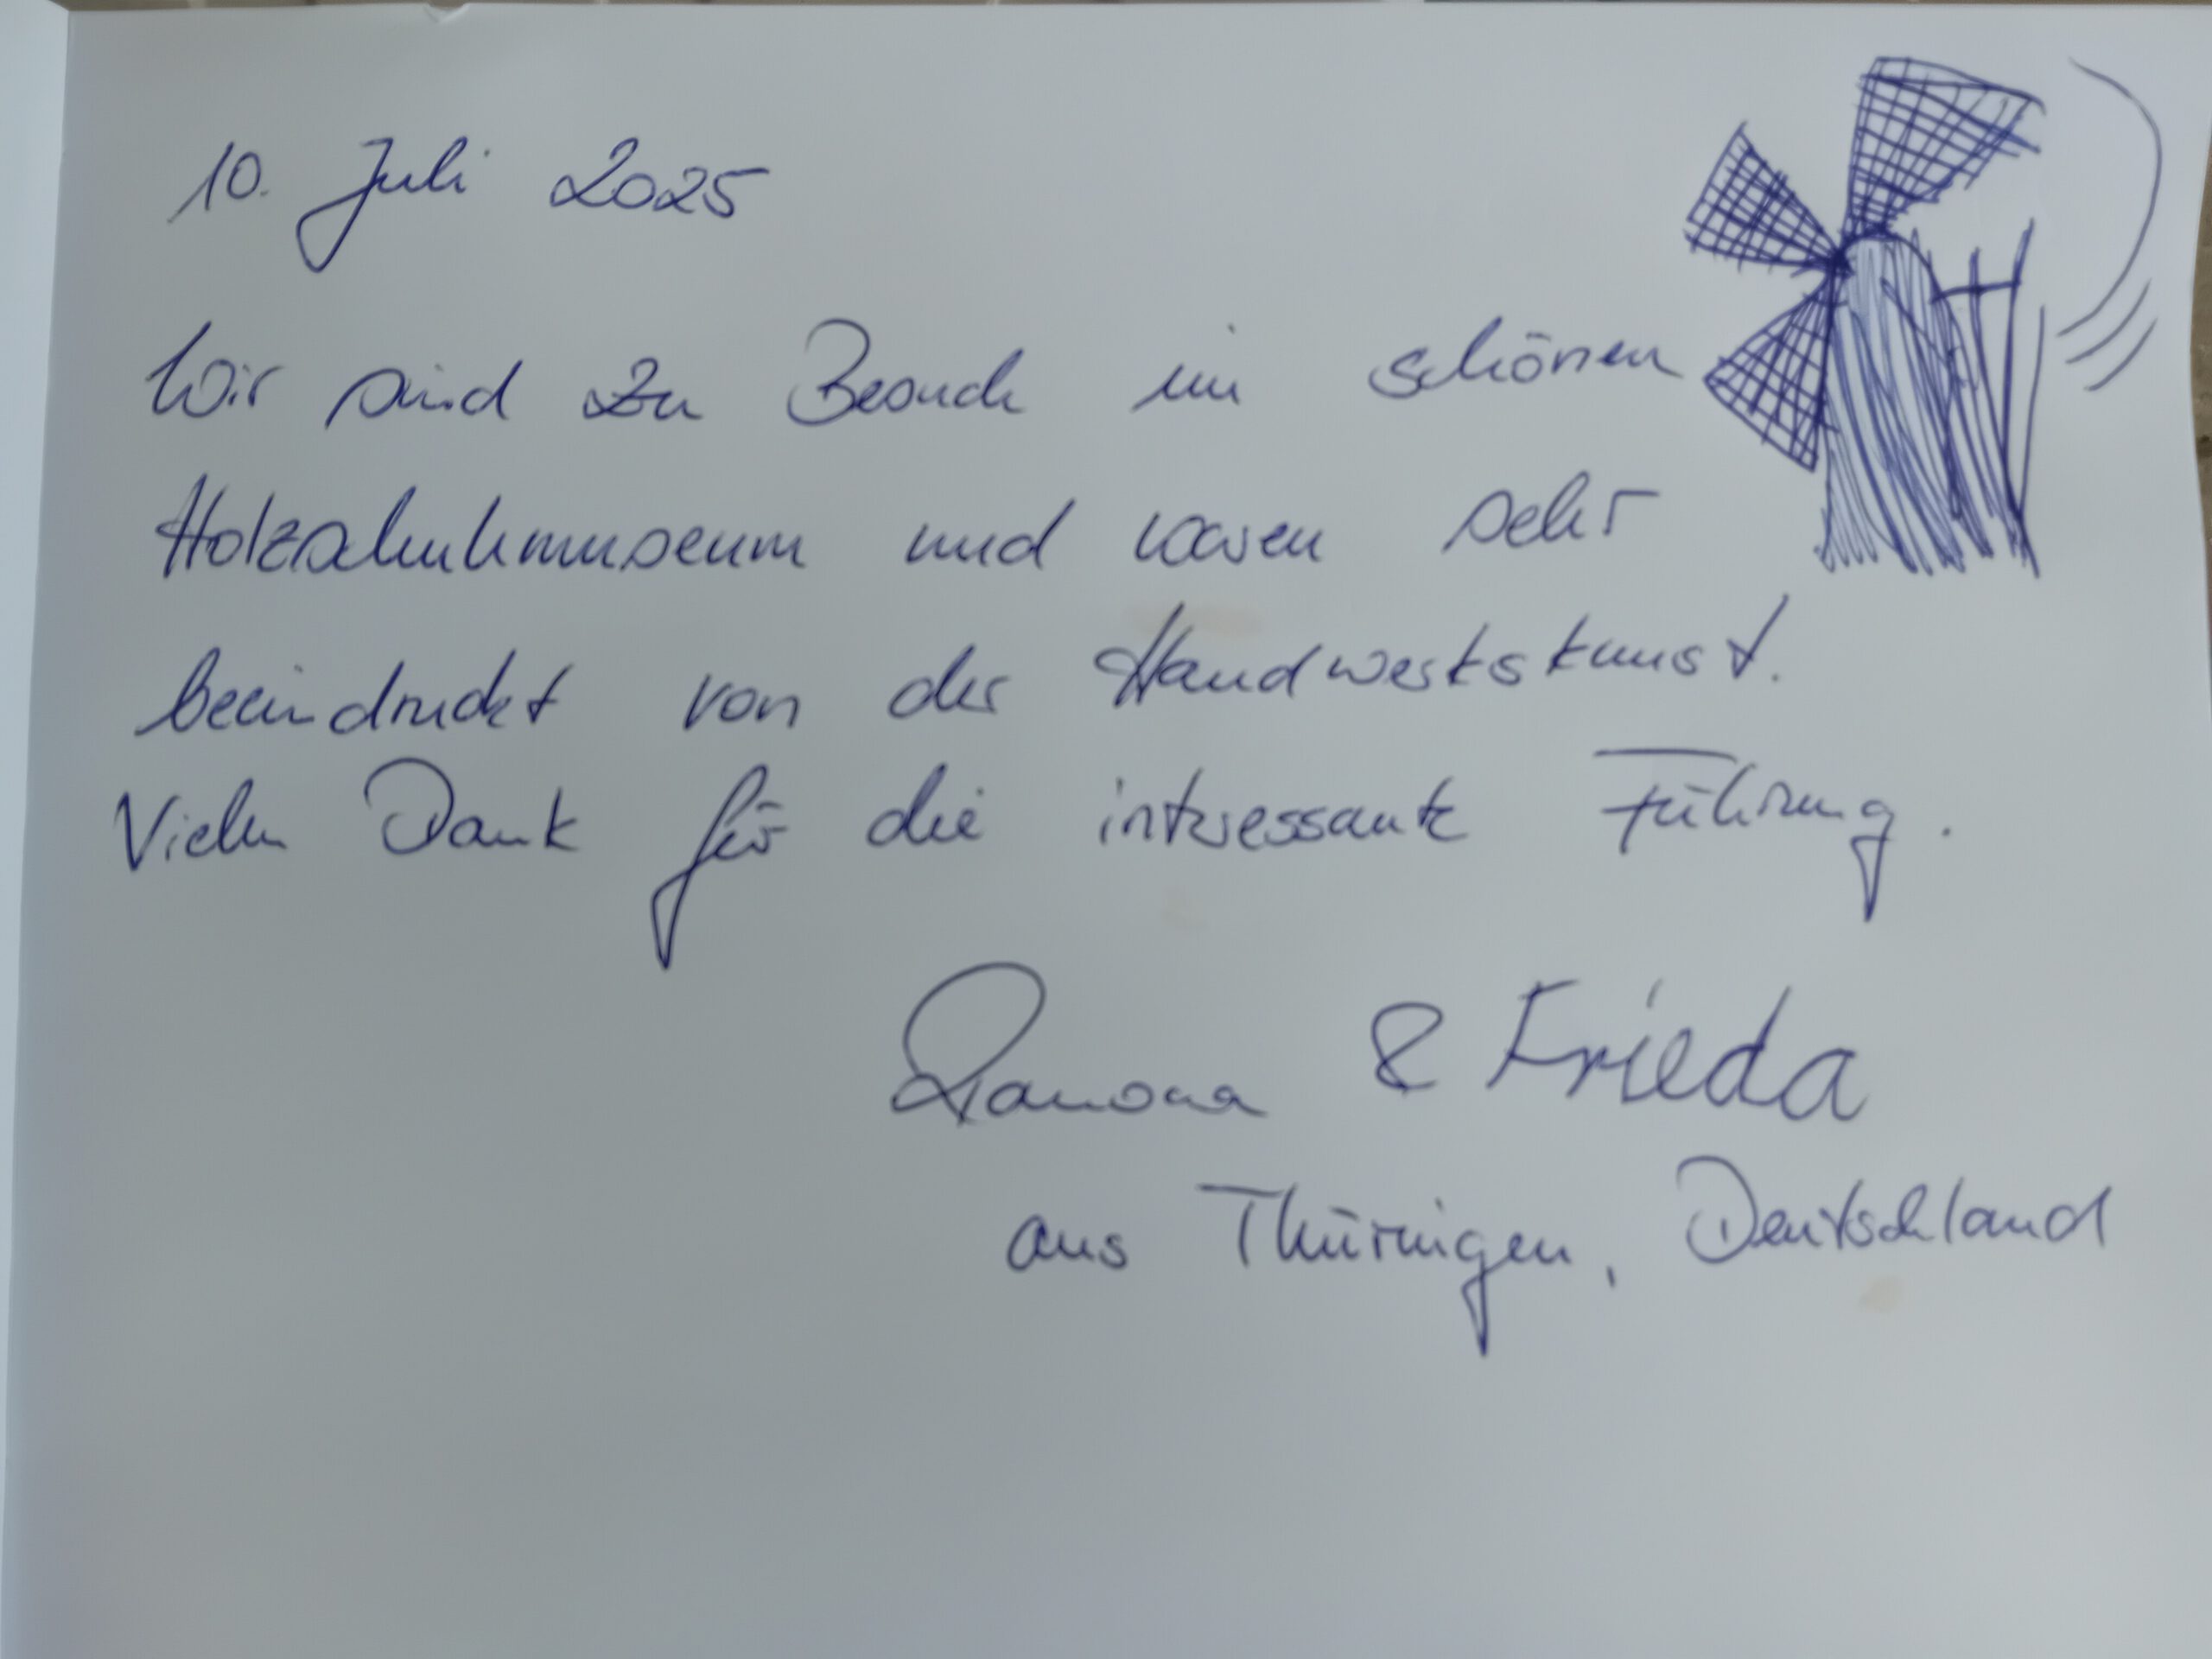 10. Juli 2025
Wir sind zu Besuch im schönen
Holzschuhmuseum und waren sehr
beeindruckt von der Handwerkskunst.
Vielen Dank für die interessante Führung.
Ramona & Frieda
aus Thüringen, Deutschland